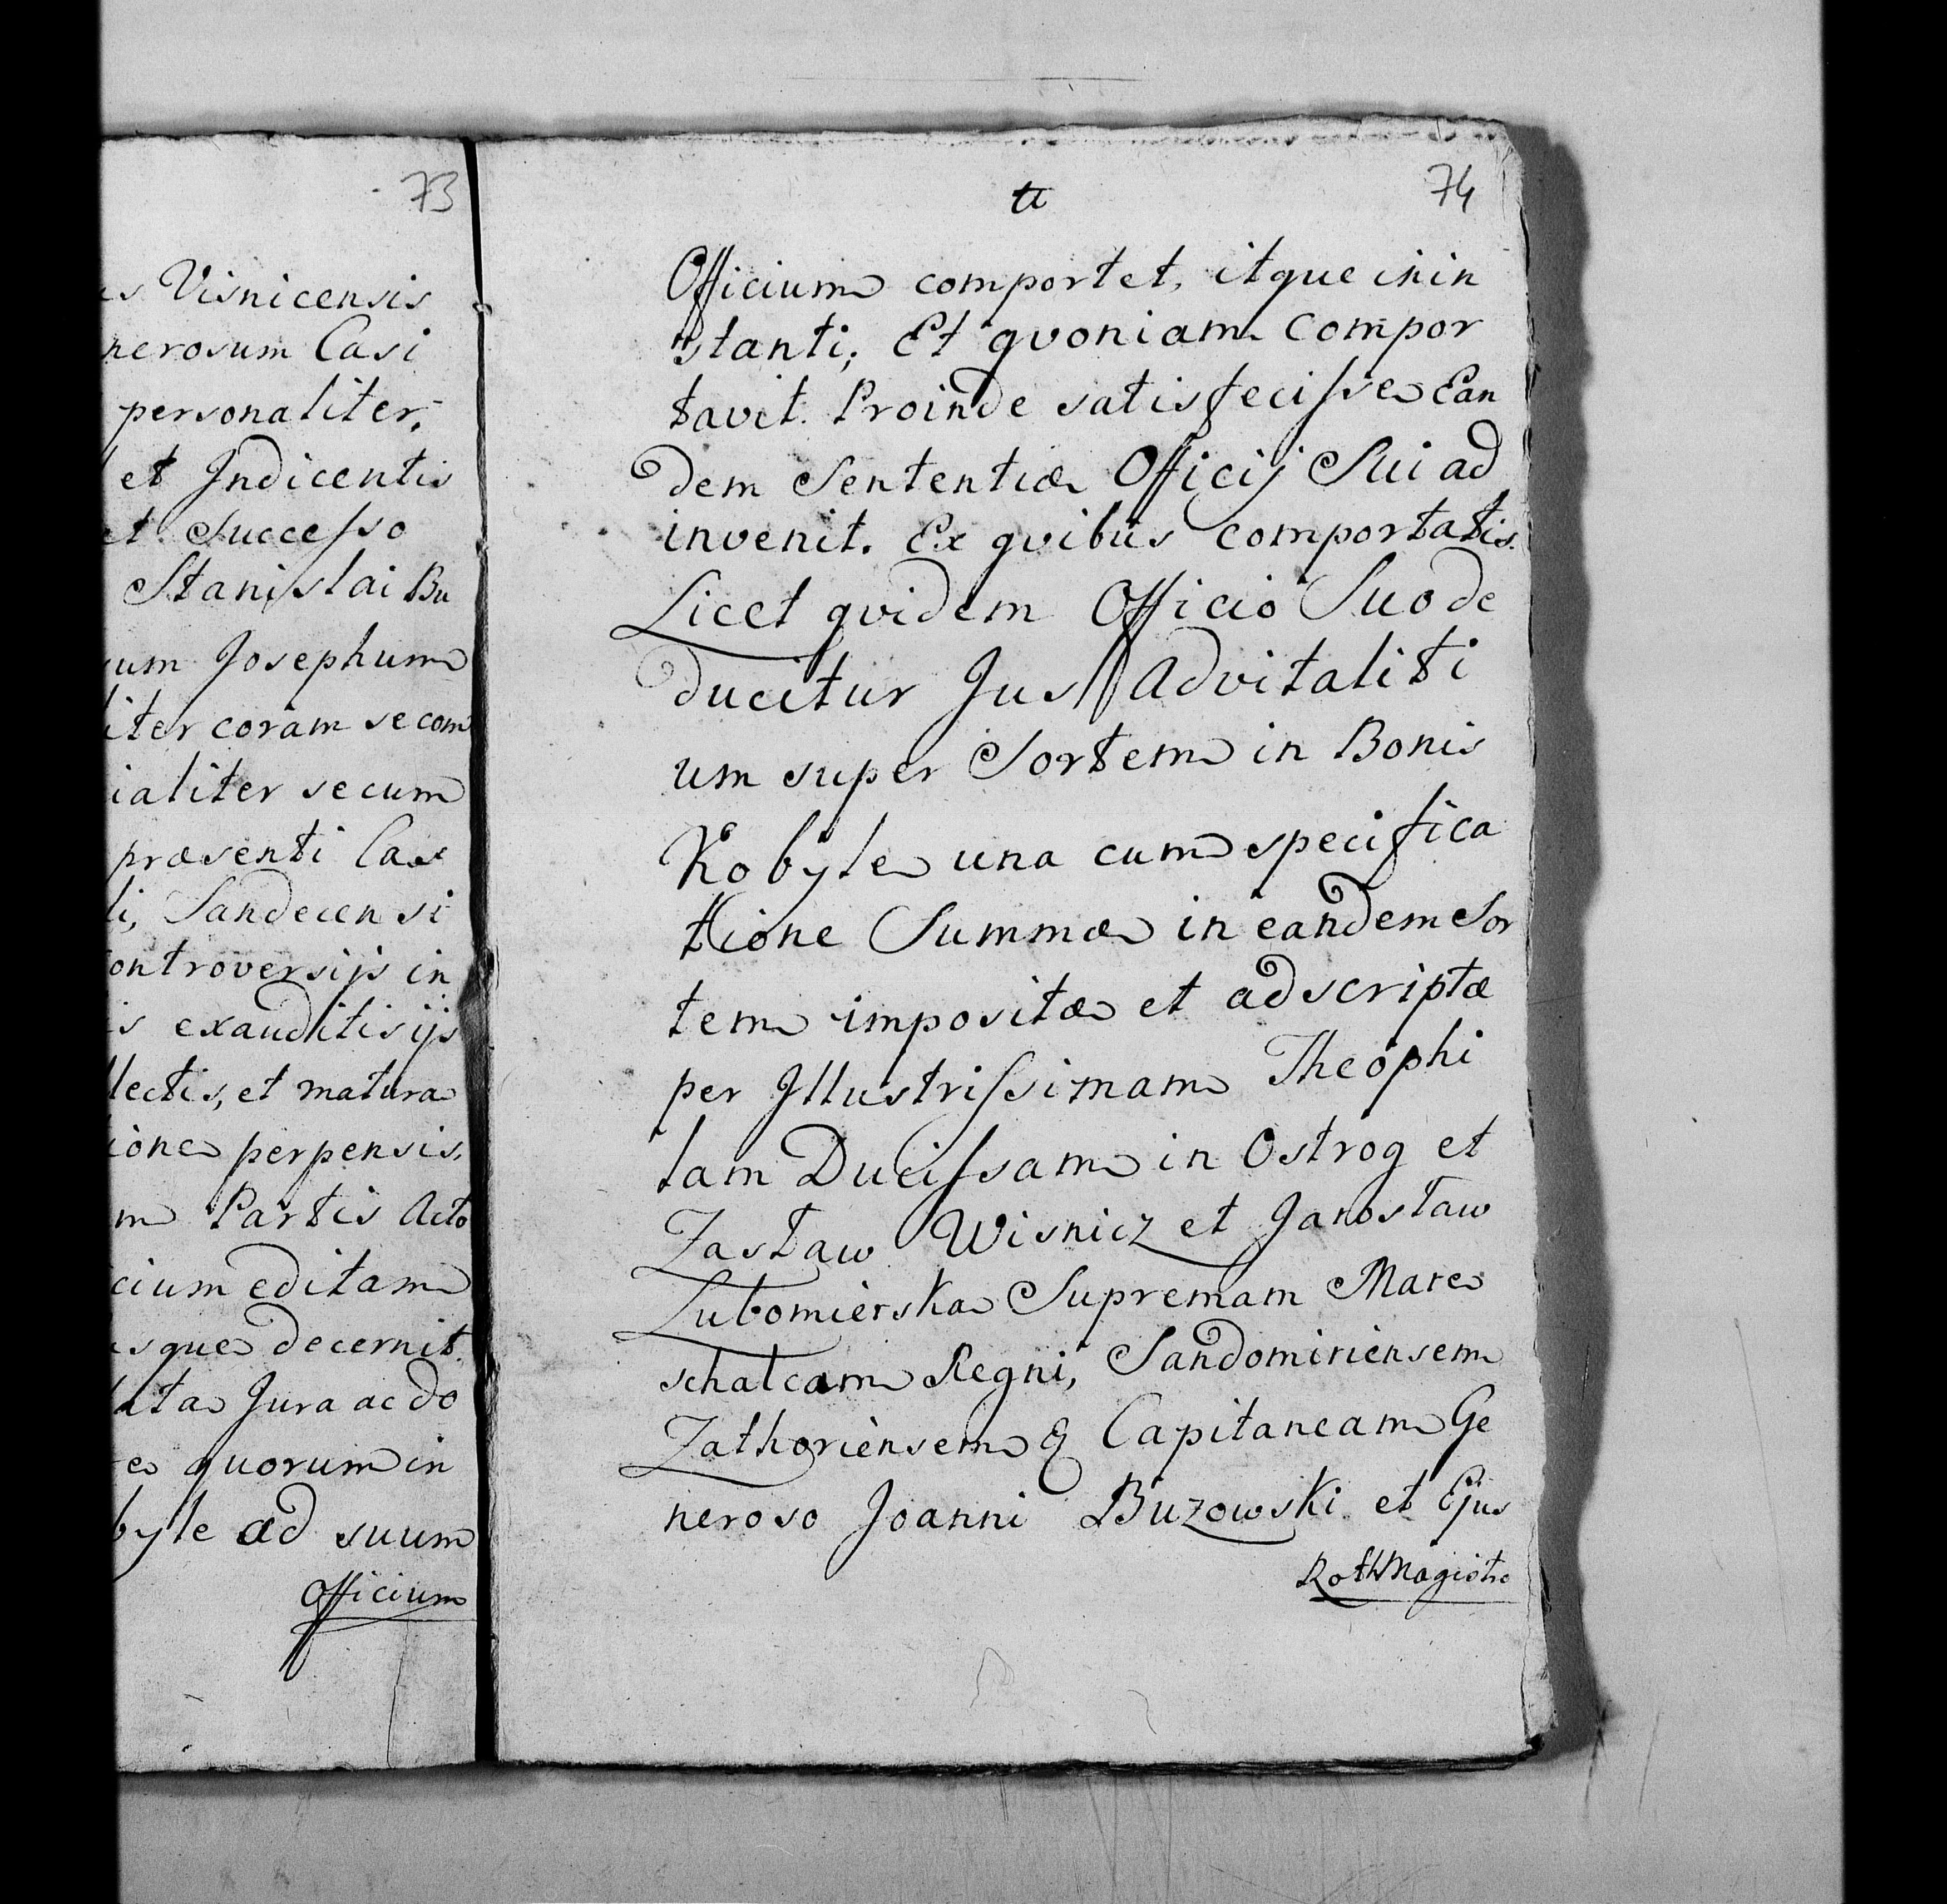 73
is Visnicensis
nerosum Casi
personaliter,
et Indicentis
et Successo
Stanislai Bu
um Josephum
iter coram se com
ialiter secum
præsenti Cas
li, Sandecensi
ontroversijs in
is exauditis ijs
lectis, et matura
ione perpensis,
m Partis Acto
cium editam
sque decernit
ta Jura ac do
e quorum in
byle ad suum
Officium
74
Officium comportet, itque inin
stanti; Et qvoniam Compor
tavit. Proinde satisfecisse Ean
dem Sententiæ Officij Sui ad
invenit. Ex qvibus comportatis.
Licet qvidem Officio Suo de
ducitur Jus Advitaliti
um super Sortem in Bonis
Kobyle una cum specifica
tione Summæ in eandem Sor
tem impositæ et adscriptæ
per Illustrissimam Theophi
lam Ducissam in Ostrog et
Zasław Wisnicz et Jarosław
Lubomierska Supremam Mare
schalcam Regni, Sandomiriensem
Zathoriensem & Capitaneam Ge
neroso Joanni Buzowski et Ejus
RothMagistro